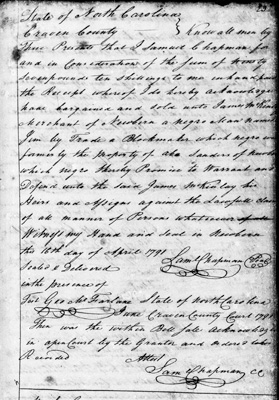 State of North Carolina
Craven County } Know all men by
these Presents that I Samuel Chapman for
and in Consideration of the Sum of Ninety
pounds ten shillings to me in hand
the Receipt whereof I do hereby acknowledge
have bargained and sold unto James McKinlay
Merchant of Newbern a negro Man named
Jim by Trade a Blockmaker which negro was
formerly the property of Sanders of
which negro I hereby Promise to Warrant and
Defend unto the said James McKinlay his
Heirs and Assigns against the Lawful claim
of all manner of Persons whatsoever
Witness my Hand and seal in Newbern
this 10th day of April 1791
Saml Chapman (Seal)
Sealed & Delivered
in the presence of
Test Geo McFarlane State of North Carolina
June Craven County Court 1791
Then was the within Bill Sale Acknowledged
in open Court by the Grantor and ordered to be
Recorded
Attest
Saml Chapman CC